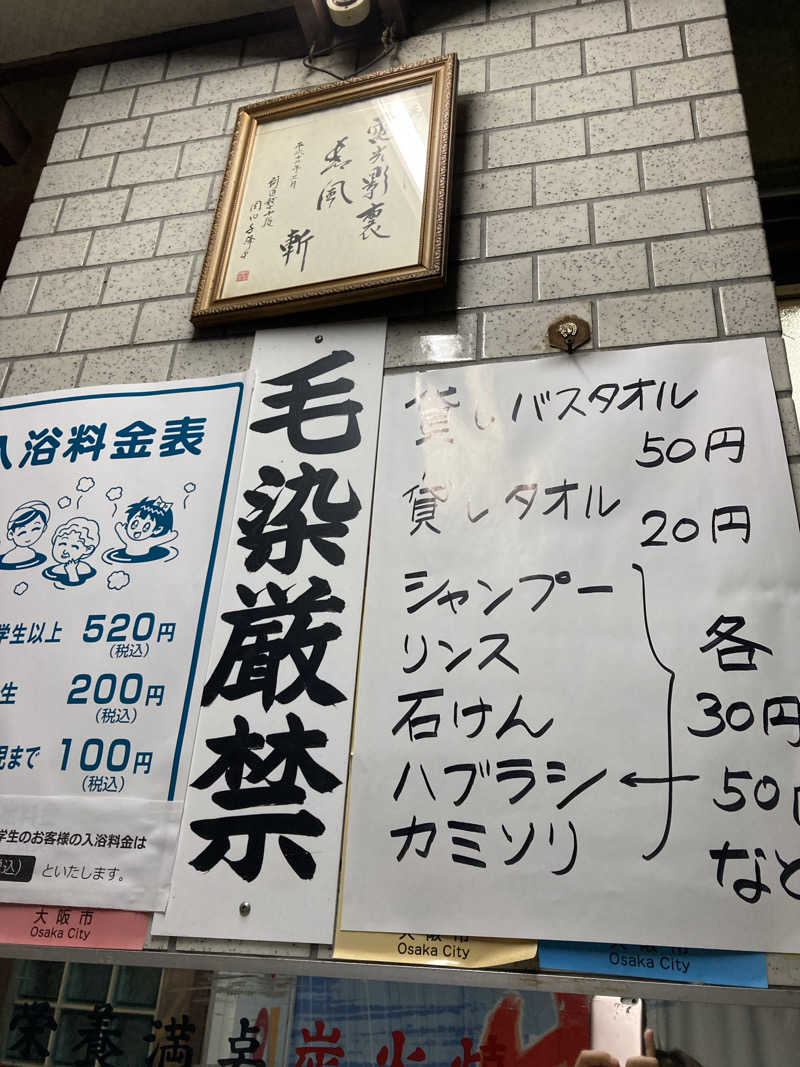 電光影裏
春風
斬
平成十一年二月
入浴料金表
学生以上 520円
(税込)
生 200円
(税込)
児まで 100円
(税込)
学生のお客様の入浴料金は
税込) といたします。
大阪市
Osaka City
毛染厳禁
貸しバスタオル
50円
貸しタオル
20円
シャンプー
リンス
石けん
ハブラシ
カミソリ
各
30円
50円
など
大阪市
Osaka City
大阪市
Osaka City
栄養満点
炭火焼